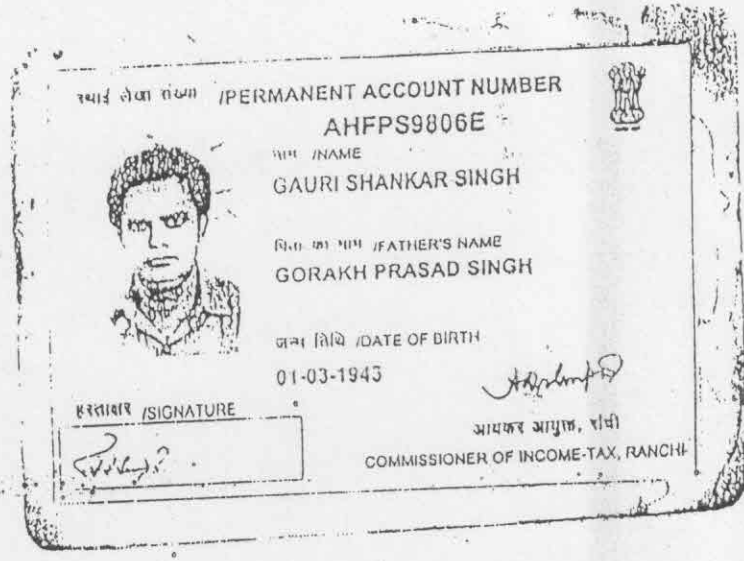 स्थाई लेखा संख्या /PERMANENT ACCOUNT NUMBER
AHFPS9806E
नाम /NAME
GAURI SHANKAR SINGH
पिता का नाम /FATHER'S NAME
GORAKH PRASAD SINGH
जन्म तिथि /DATE OF BIRTH
01-03-1943
हस्ताक्षर /SIGNATURE
आयकर आयुक्त, रांची
COMMISSIONER OF INCOME-TAX, RANCHI